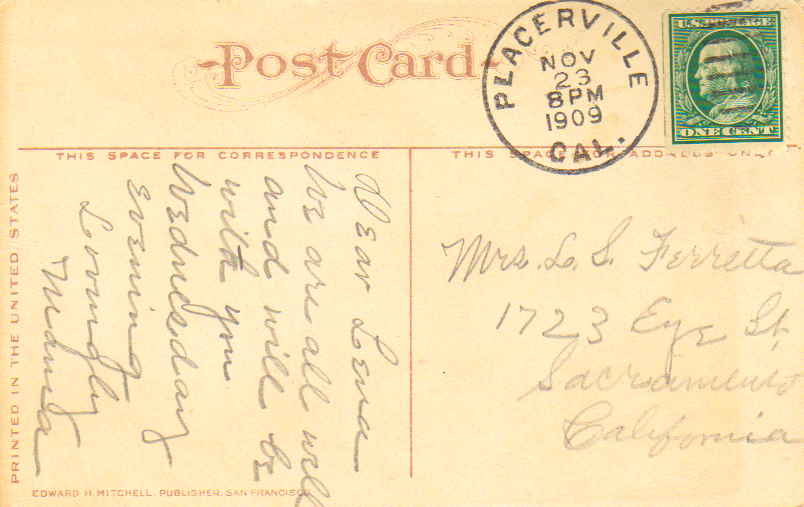 Post Card
PLACERVILLE
NOV
23
8 PM
1909
CAL.
U.S. POSTAGE
ONE CENT
THIS SPACE FOR CORRESPONDENCE
THIS SPACE FOR ADDRESS ONLY
Dear Lena
We are all well
and will be
with you
Wednesday
evening
Lovingly
Mama
Mrs. L. S. Ferretta
1723 Eye St.
Sacramento
California
PRINTED IN THE UNITED STATES
EDWARD H. MITCHELL, PUBLISHER, SAN FRANCISCO